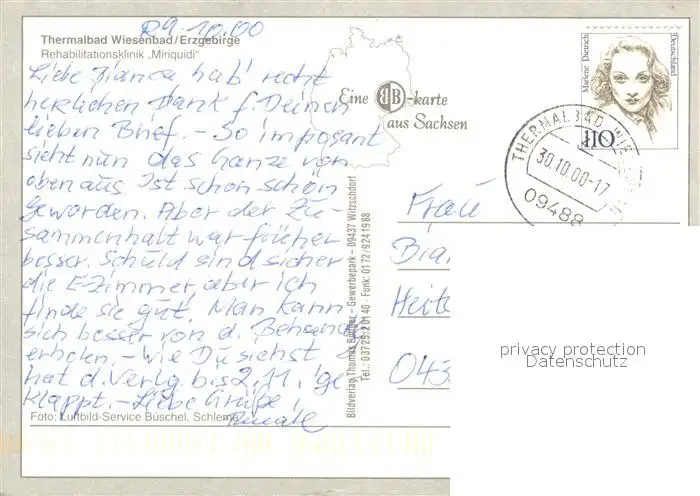 29.10.00
Thermalbad Wiesenbad/Erzgebirge
Rehabilitationsklinik „Miriquidi"
Liebe Bianca hab' recht
herzlichen Dank f. Deinen
lieben Brief. – So imposant
sieht nun das Ganze von
oben aus. Ist schon schön
geworden. Aber der Zu-
sammenhalt war früher
besser. Schuld sind sicher
die E-Zimmer, aber ich
finde sie gut. Man kann
sich besser von d. Behandlg
erholen. – Wie Du siehst
hat d. Verlg. bis 2.11. ge
klappt. – Liebe Grüße!
Renate
Foto: Luftbild-Service Büschel, Schlema
Eine BB-karte
aus Sachsen
Bildverlag Thomas Böttger – Gewerbepark – 09437 Witzschdorf
Tel.: 03725/20140 · Funk: 0172/9241988
Marlene Dietrich
Deutschland
110
THERMALBAD WIE
30.10.00-17
09488
Frau
Bia
Heite
043
privacy protection
Datenschutz